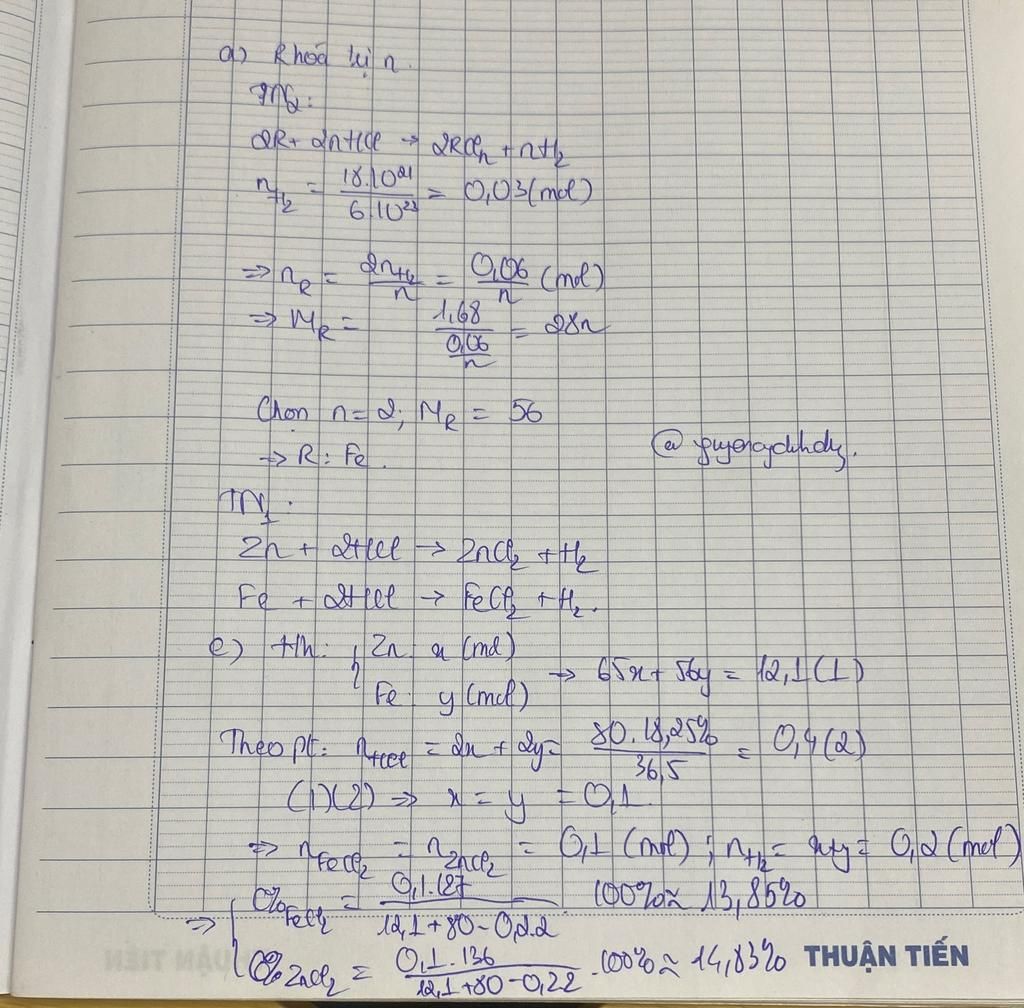 a) R hoá trị n.
TN2:
2R + 2nHCl → 2RCln + nH2
nH2 = 18.10^21 / 6.10^23 = 0,03 (mol)
⇒ nR = 2nH2 / n = 0,06 / n (mol)
⇒ MR = 1,68 / (0,06 / n) = 28n
Chọn n = 2; MR = 56
→ R: Fe.
TN1:
Zn + 2HCl → ZnCl2 + H2
Fe + 2HCl → FeCl2 + H2.
c) Hh: { Zn: x (mol)
Fe: y (mol) → 65x + 56y = 12,1 (1)
Theo pt: nHCl = 2x + 2y = 80.18,25% / 36,5 = 0,4 (2)
(1)(2) ⇒ x = y = 0,1
⇒ nFeCl2 = nZnCl2 = 0,1 (mol); nH2 = x+y = 0,2 (mol)
⇒ { C%FeCl2 = 0,1.127 / (12,1 + 80 - 0,2.2) . 100% ≈ 13,85%
C%ZnCl2 = 0,1.136 / (12,1 + 80 - 0,2.2) .100% ≈ 14,83%
THUẬN TIẾN